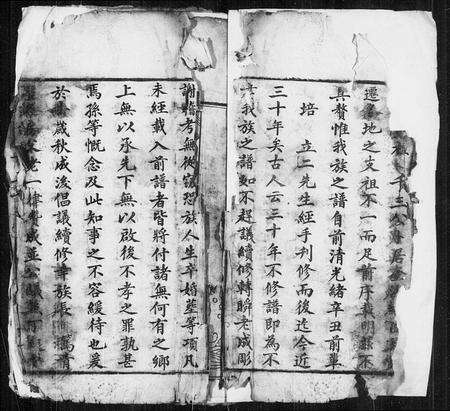 遷各地之支祖不一而足前序載明茲不
具贅惟我族之譜自前清光緒辛丑前輩
培 立二先生經手刊修而後迄今近
三十年矣古人云三十年不修譜即為不
我族之譜如不趕議續修轉瞬老成彫
謝稽考無從竊恐族人生卒婚塋等項凡
未經載入前譜者皆將付諸無何有之鄉
上無以承先下無以啟後不孝之罪孰甚
焉孫等慨念及此知事之不容緩待也爰
於 歲秋成後倡議續修率族
一律贊成並公